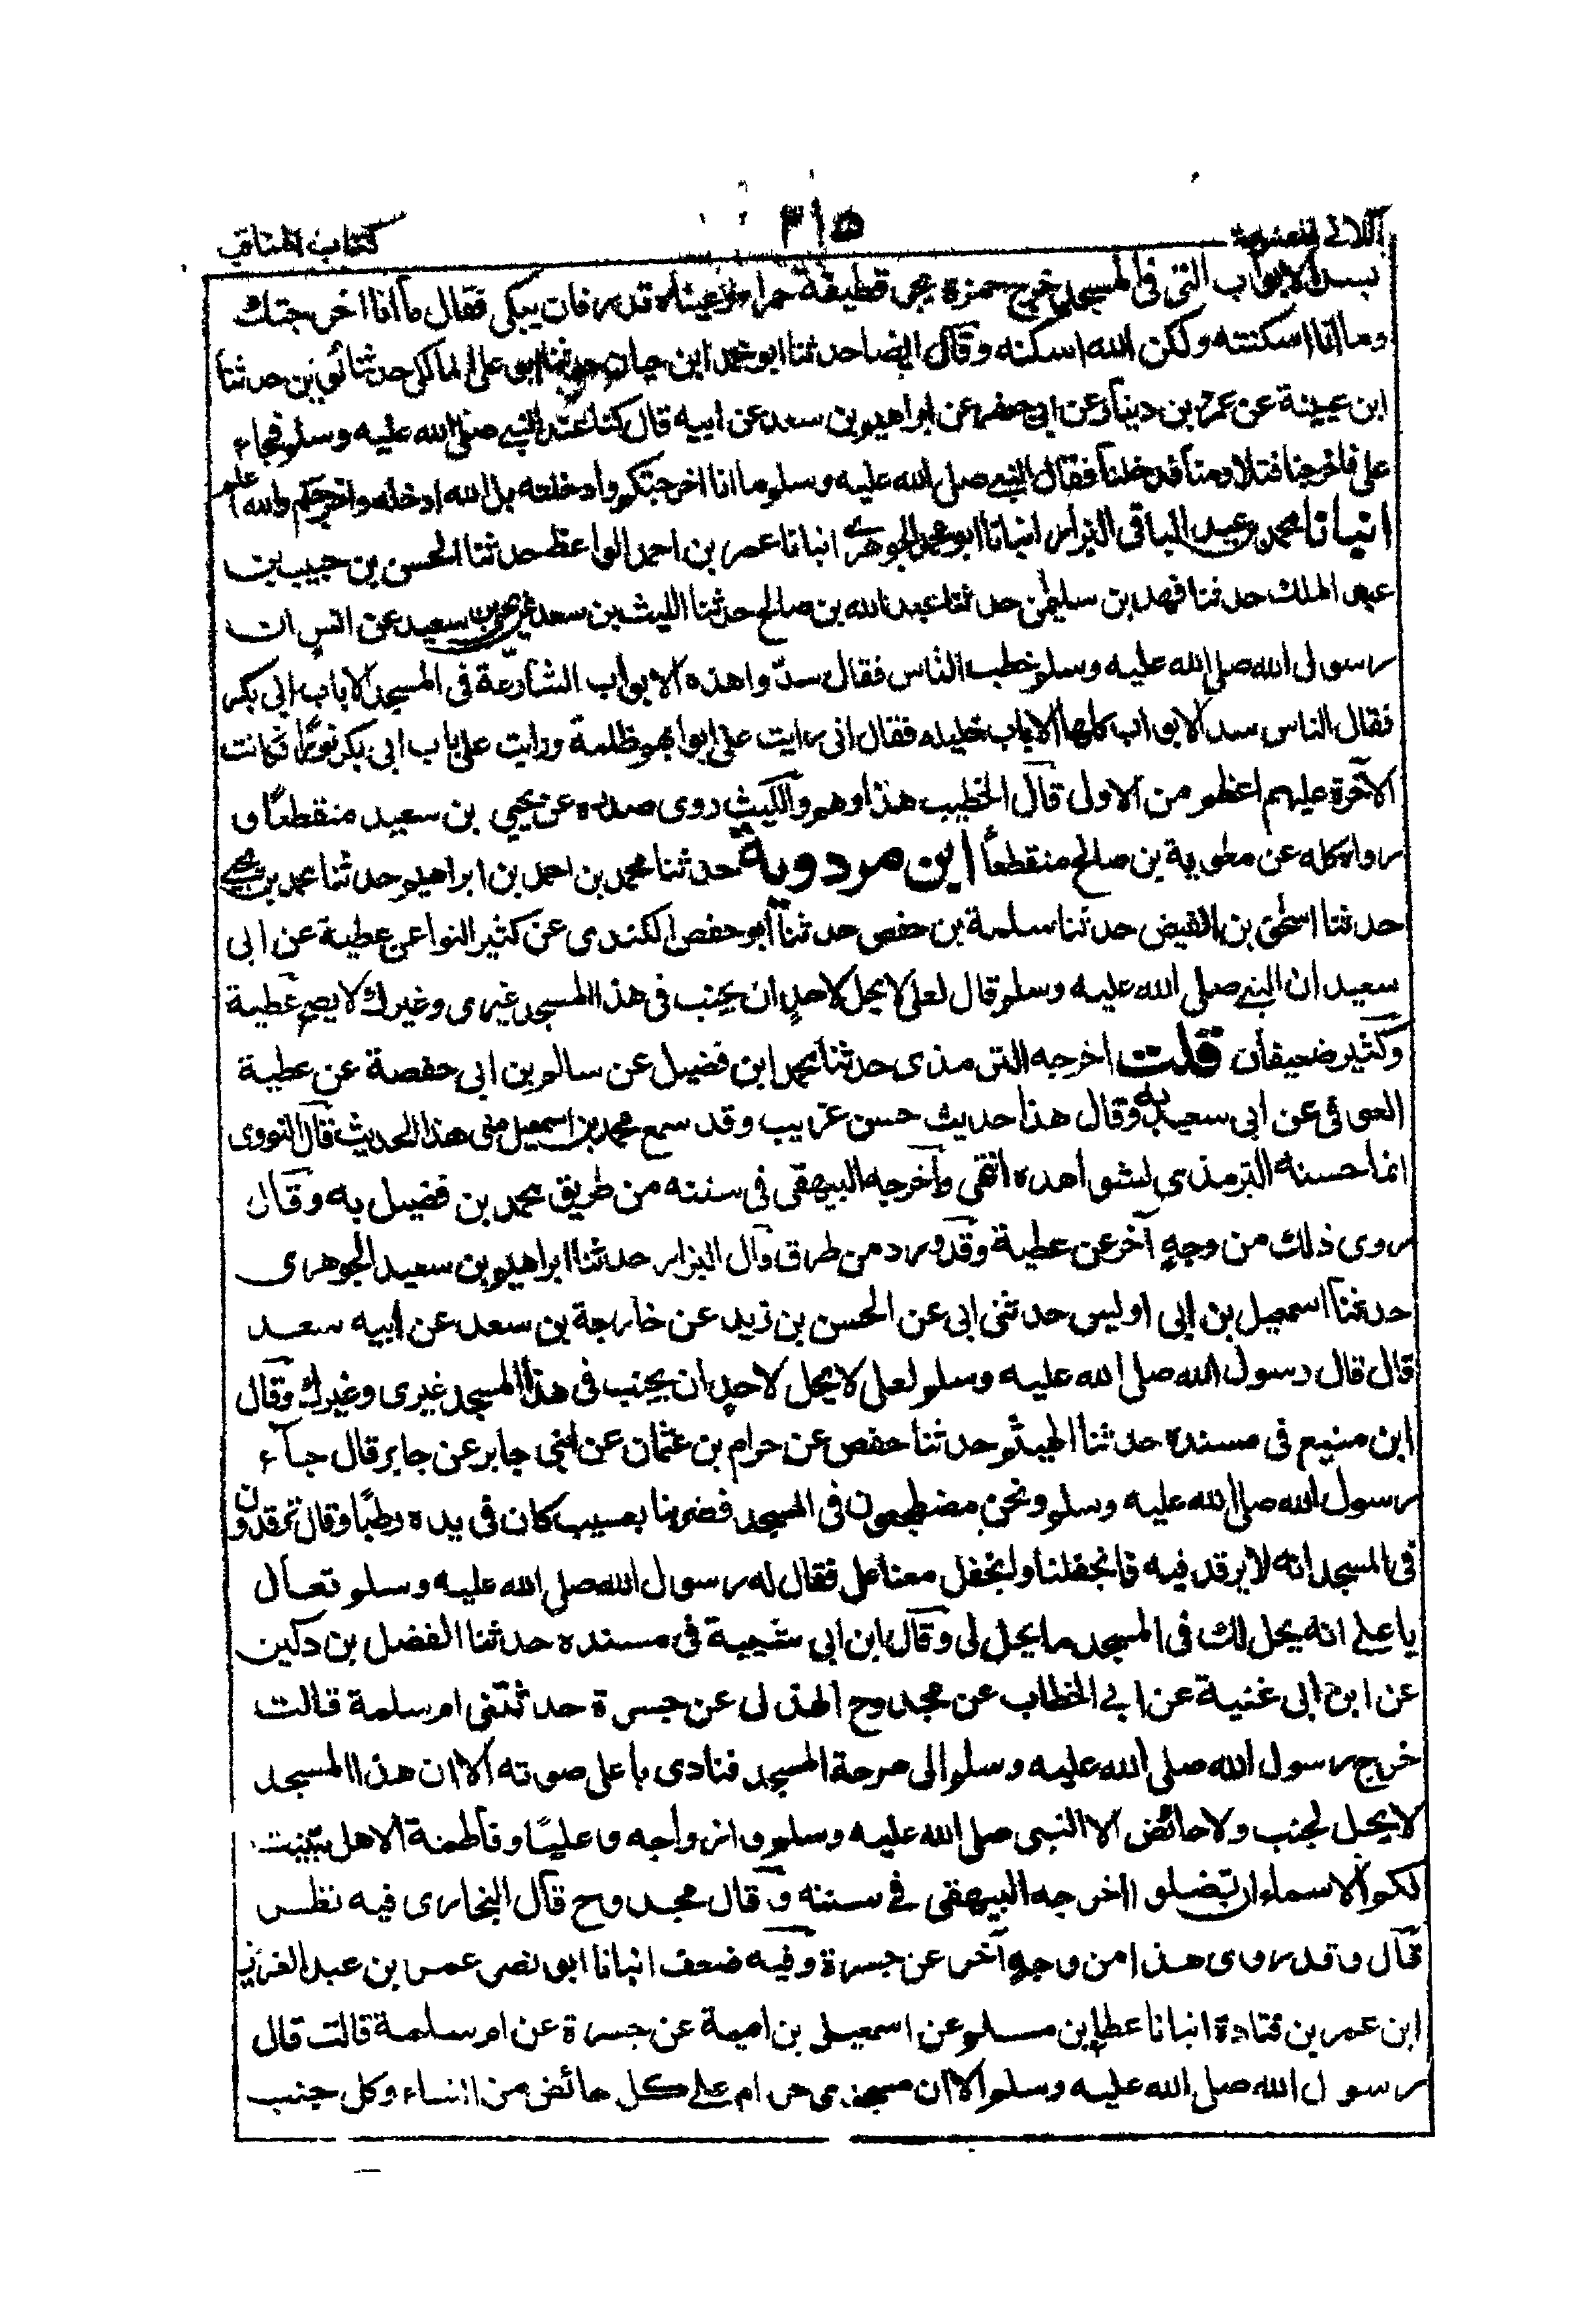 اللآلى المصنوعة ٣١٥ كتاب المناقب
بسد الابواب التى فى المسجد خرج حمزة يجر قطيفة حمراء وعيناه تذرفان يبكى فقال ما انا اخرجتك
وما انا اسكنته ولكن الله اسكنه وقال ايضا حدثنا ابو محمد ابن حيان حدثنا ابو على المالكى حدثنا لوين حدثنا
ابن عيينة عن عمرو بن دينار عن ابى جعفر عن ابراهيم بن سعد عن ابيه قال كنا عند النبى صلى الله عليه وسلم فجاء
على فاخرجنا فتلاومنا فدخلنا فقال النبى صلى الله عليه وسلم ما انا اخرجتكم وادخلته بل الله ادخله واخرجكم والله اعلم
انبانا محمد بن عبد الباقى البزار انبانا ابو محمد الجوهرى انبانا عمر بن احمد الواعظ حدثنا الحسن بن حبيب بن
عبد الملك حدثنا فهد بن سليمٰن حدثنا عبد الله بن صالح حدثنا الليث بن سعد عن يحيى بن سعيد عن انس ان
رسول الله صلى الله عليه وسلم خطب الناس فقال سدّوا هذه الابواب الشارعة فى المسجد الا باب ابى بكر
فقال الناس سد الابواب كلها الا باب خليله فقال انى رايت على ابوابهم ظلمة ورايت على باب ابى بكر نورًا فكانت
الآخرة عليهم اعظم من الاولى قال الخطيب هذا وهم والليث روى صدره عن يحيى بن سعيد منقطعًا و
رواه كله عن معٰوية بن صالح منقطعاً ابن مردوية حدثنا محمد بن احمد بن ابراهيم حدثنا محمد بن يحيى
حدثنا اسحٰق بن الفيض حدثنا سلمة بن حفص حدثنا ابو حفص الكندى عن كثير النوا عن عطية عن ابى
سعيد ان النبى صلى الله عليه وسلم قال لعلى لا يحل لاحدٍ ان يجنب فى هذا المسجد غيرى وغيرك لا يصح عطية
وكثير ضعيفان قلت اخرجه الترمذى حدثنا محمد ابن فضيل عن سالم بن ابى حفصة عن عطية
العوفى عن ابى سعيد به وقال هذا حديث حسن غريب وقد سمع محمد بن اسمعيل منى هذا الحديث قال النووى
انما حسنه الترمذي لشواهده انتهى واخرجه البيهقى فى سننه من طريق محمد بن فضيل به وقال
روى ذلك من وجهٍ آخر عن عطية وقد ورد من طرق قال البزار حدثنا ابراهيم بن سعيد الجوهرى
حدثنا اسمعيل بن ابى اوليس حدثنى ابى عن الحسن بن زيد عن خارجة بن سعد عن ابيه سعد
قال قال رسول الله صلى الله عليه وسلم لعلى لا يحل لاحدٍ ان يجنب فى هذا المسجد غيرى وغيرك وقال
ابن منيع فى مسنده حدثنا الهيثم حدثنا حفص عن حرام بن عثمان عن ابنى جابر عن جابر قال جاء
رسول الله صلى الله عليه وسلم ونحن مضطجعون فى المسجد فضربنا بعسيب كان فى يده رطبًا وقال ترقدون
فى المسجد انه لا يرقد فيه فانجفلنا وانجفل معنا على فقال له رسول الله صلى الله عليه وسلم تعال
يا على انه يحل لك فى المسجد ما يحل لى وقال ابن ابى شيبة فى مسنده حدثنا الفضل بن دكين
عن ابن ابى غنية عن ابى الخطاب عن محدوج الهذلى عن جسرة حدثتنى ام سلمة قالت
خرج رسول الله صلى الله عليه وسلم الى صرحة المسجد فنادى باعلى صوته الا ان هذا المسجد
لا يحل لجنب ولا حائض الا النبى صلى الله عليه وسلم وازواجه وعليًا وفاطمة الا هل بينت
لكم الاسماء ان تضلوا اخرجه البيهقى فى سننه وقال محدوج قال البخارى فيه نظر
قال وقد روى هذا من وجهٍ آخر عن جسرة وفيه ضعف انبانا ابو نصر عمر بن عبد العزيز
ابن عمر بن قتادة انبانا عطا بن مسلم عن اسمعيل بن امية عن جسرة عن ام سلمة قالت قال
رسول الله صلى الله عليه وسلم الا ان مسجدى حرام على كل حائض من النساء وكل جنب